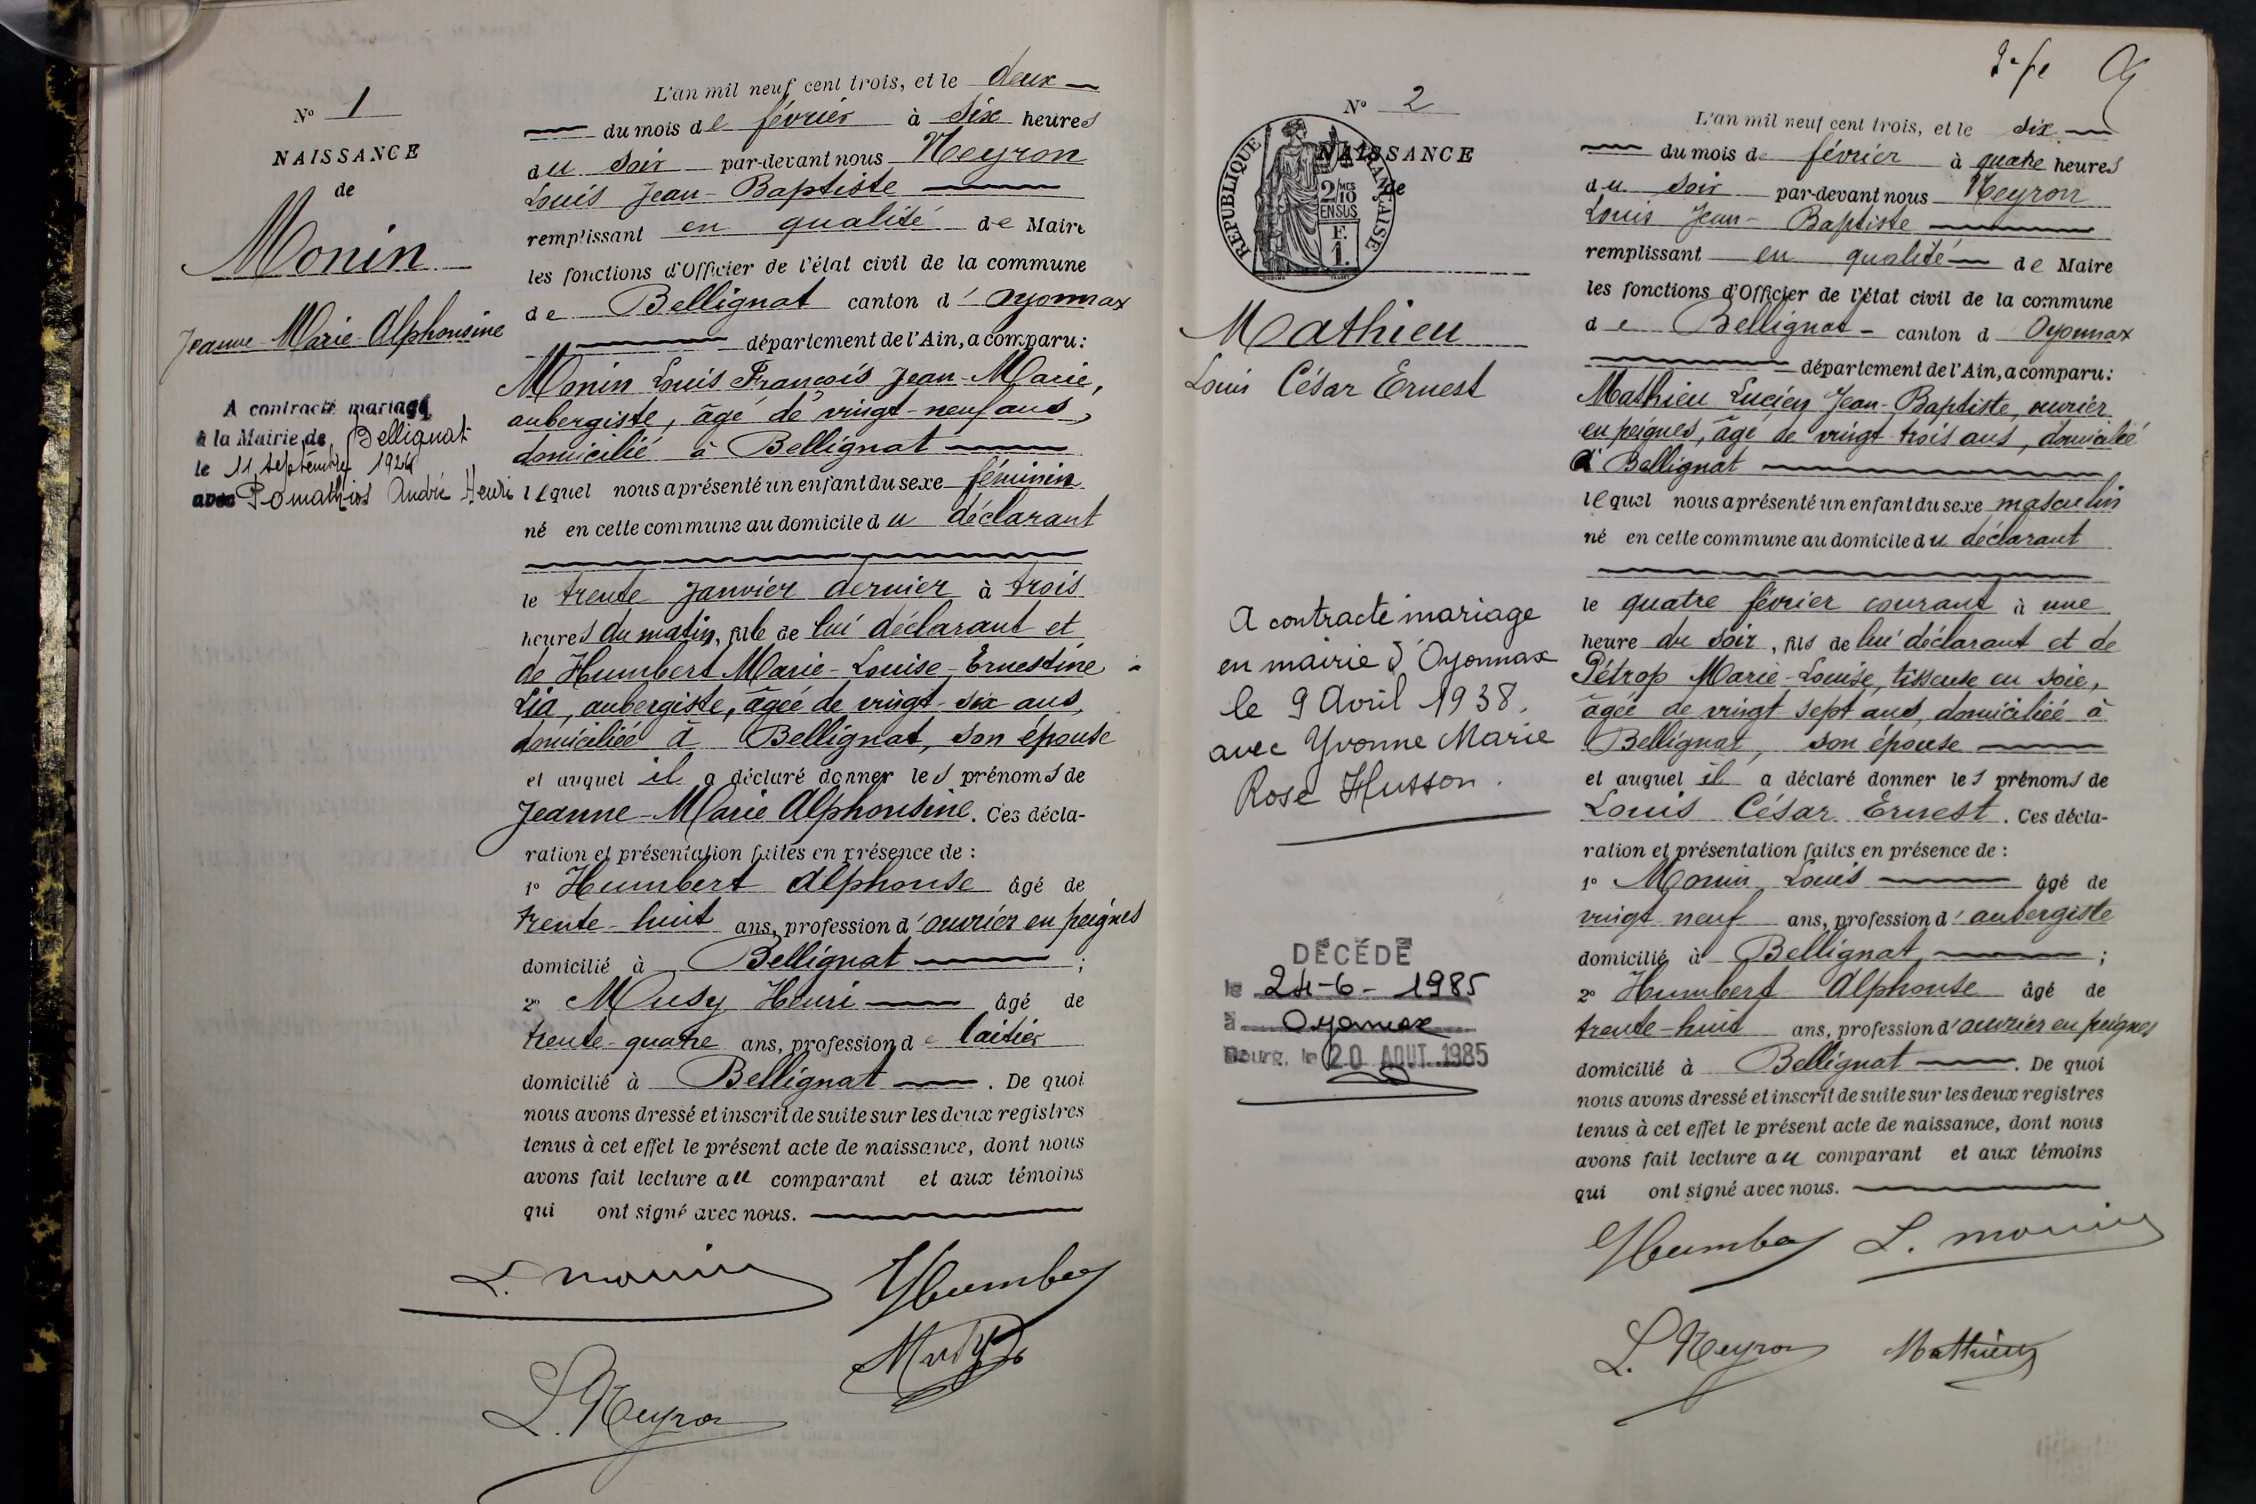 N° 1
NAISSANCE
de
Monin
Jeanne-Marie-Alphonsine
A contracté mariage
à la Mairie de Bellignat
le 11 septembre 1924
avec Pomathios André Henri
L'an mil neuf cent trois, et le deux
du mois de février à six heures
du soir par-devant nous Neyron
Louis Jean-Baptiste
remplissant en qualité de Maire
les fonctions d'Officier de l'état civil de la commune
de Bellignat canton d'Oyonnax
département de l'Ain, a comparu:
Monin Louis François Jean-Marie,
aubergiste, âgé de vingt-neuf ans,
domicilié à Bellignat
lequel nous a présenté un enfant du sexe féminin
né en cette commune au domicile du déclarant
le trente janvier dernier à trois
heures du matin, fille de lui déclarant et
de Humbert Marie-Louise-Ernestine
Lia, aubergiste, âgée de vingt-six ans,
domiciliée à Bellignat, son épouse
et auquel il a déclaré donner les prénoms de
Jeanne-Marie Alphonsine. Ces décla-
ration et présentation faites en présence de :
1° Humbert Alphonse âgé de
trente-huit ans, profession d'ouvrier en peignes
domicilié à Bellignat ;
2° Musy Henri âgé de
trente-quatre ans, profession de laitier
domicilié à Bellignat . De quoi
nous avons dressé et inscrit de suite sur les deux registres
tenus à cet effet le présent acte de naissance, dont nous
avons fait lecture au comparant et aux témoins
qui ont signé avec nous.
L. monin Humbert
Musy
L. Neyron
N° 2
NAISSANCE
de
RÉPUBLIQUE FRANÇAISE
2/10
EN SUS
F.
1.
Mathieu
Louis César Ernest
A contracté mariage
en mairie d'Oyonnax
le 9 Avril 1938.
avec Yvonne Marie
Rose Husson.
DÉCÉDÉ
le 24-6-1985
à Oyonnax
Bourg, le 20 AOUT 1985
L'an mil neuf cent trois, et le six
du mois de février à quatre heures
du soir par-devant nous Neyron
Louis Jean-Baptiste
remplissant en qualité de Maire
les fonctions d'Officier de l'état civil de la commune
de Bellignat - canton d Oyonnax
département de l'Ain, a comparu:
Mathieu Lucien Jean-Baptiste, ouvrier
en peignes, âgé de vingt-trois ans, domicilié
à Bellignat
lequel nous a présenté un enfant du sexe masculin
né en cette commune au domicile du déclarant
le quatre février courant à une
heure du soir, fils de lui déclarant et de
Pétrop Marie-Louise, tisseuse en soie,
âgée de vingt sept ans, domiciliée à
Bellignat, son épouse
et auquel il a déclaré donner les prénoms de
Louis César Ernest. Ces décla-
ration et présentation faites en présence de :
1° Monin Louis âgé de
vingt neuf ans, profession d'aubergiste
domicilié à Bellignat ;
2° Humbert Alphonse âgé de
trente-huit ans, profession d'ouvrier en peignes
domicilié à Bellignat . De quoi
nous avons dressé et inscrit de suite sur les deux registres
tenus à cet effet le présent acte de naissance, dont nous
avons fait lecture au comparant et aux témoins
qui ont signé avec nous.
Humbert L. monin
L. Neyron Mathieu